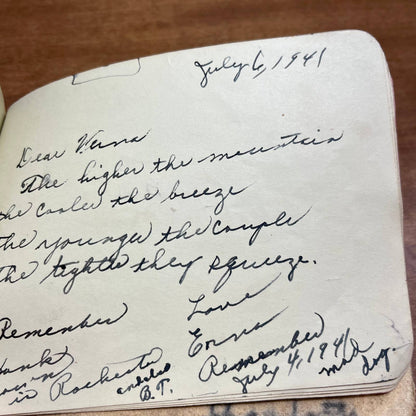 July 6, 1941
Dear Verna
The higher the mountain
the cooler the breeze
the younger the couple
the tighter they squeeze.
Love
Erma
Remember
Hank
Down
in Rochester
B.T.
Remember
July 4, 1941
mad
dog.